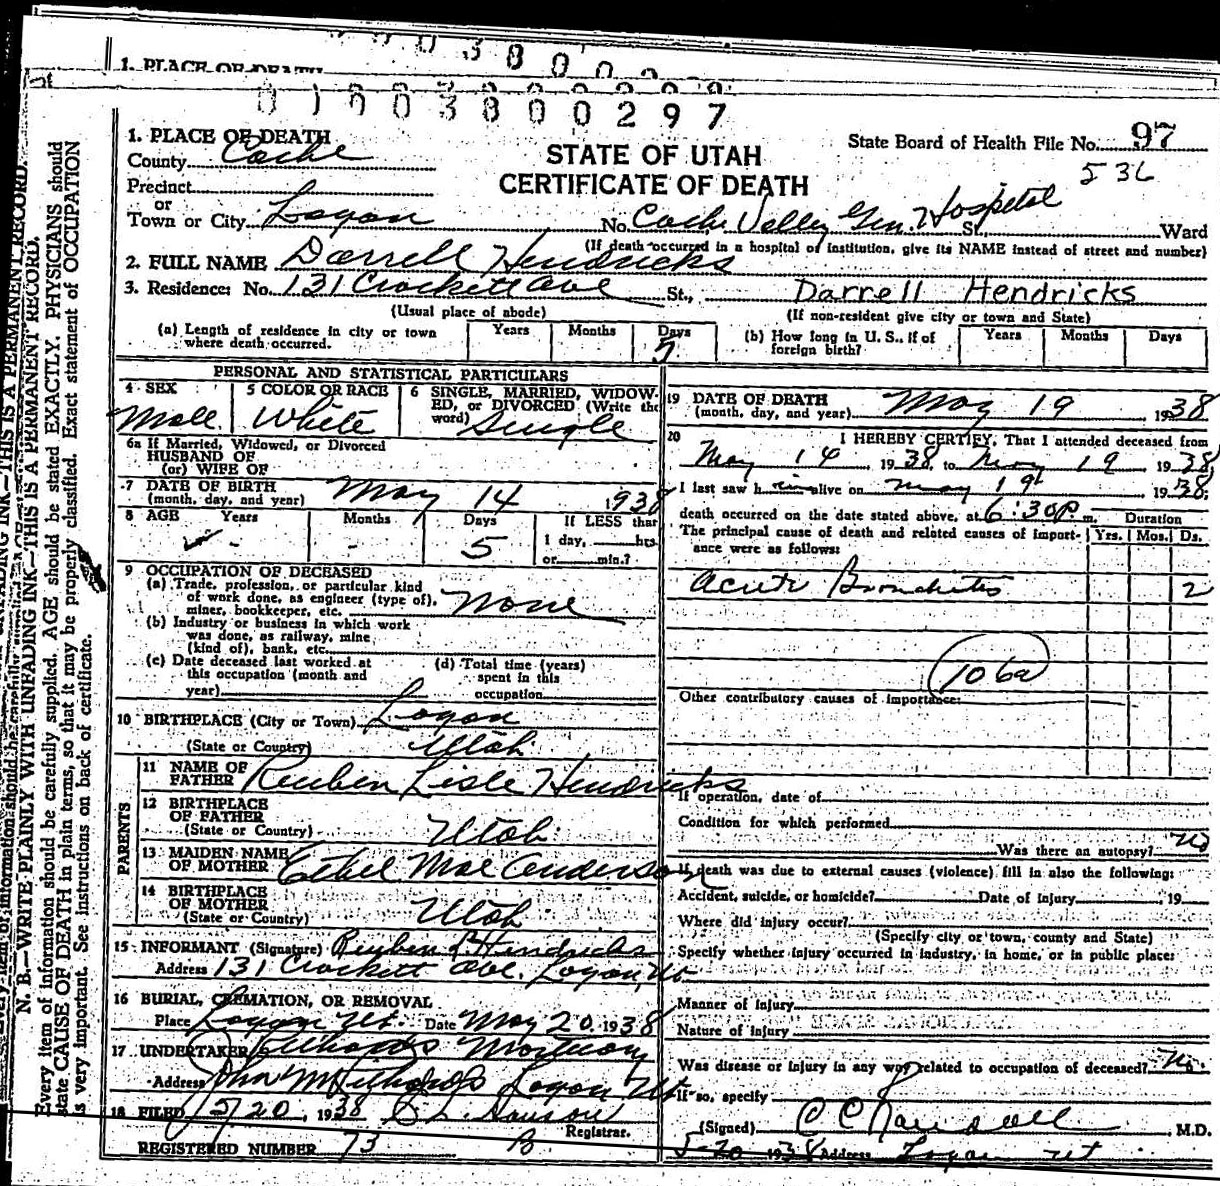 1. PLACE OF DEATH
0 1 0 0 3 8 0 0 2 9 7
1. PLACE OF DEATH
County Cache
STATE OF UTAH
CERTIFICATE OF DEATH
State Board of Health File No. 97
536
Precinct
or
Town or City Logan No. Cache Valley Gen. Hospital St. Ward
(If death occurred in a hospital or institution, give its NAME instead of street and number)
2. FULL NAME Darrell Hendricks
3. Residence: No. 131 Crockett Ave St., Darrell Hendricks
(Usual place of abode) (If non-resident give city or town and State)
(a) Length of residence in city or town where death occurred. Years Months Days 5
(b) How long in U. S., if of foreign birth? Years Months Days
PERSONAL AND STATISTICAL PARTICULARS
4 SEX Male
5 COLOR OR RACE White
6 SINGLE, MARRIED, WIDOWED, or DIVORCED (Write the word) Single
6a If Married, Widowed, or Divorced
HUSBAND OF
(or) WIFE OF
7 DATE OF BIRTH
(month, day, and year) May 14 1938
8 AGE Years Months Days 5
If LESS than
1 day, hrs
or min.?
9 OCCUPATION OF DECEASED
(a) Trade, profession, or particular kind
of work done, as engineer (type of),
miner, bookkeeper, etc. None
(b) Industry or business in which work
was done, as railway, mine
(kind of), bank, etc.
(c) Date deceased last worked at
this occupation (month and
year)
(d) Total time (years)
spent in this
occupation
10 BIRTHPLACE (City or Town) Logan
(State or Country) Utah
PARENTS
11 NAME OF
FATHER Reuben Lisle Hendricks
12 BIRTHPLACE
OF FATHER
(State or Country) Utah
13 MAIDEN NAME
OF MOTHER Ethel Mae Anderson
14 BIRTHPLACE
OF MOTHER
(State or Country) Utah
15 INFORMANT (Signature) Reuben L Hendricks
Address 131 Crockett Ave. Logan, Ut
16 BURIAL, CREMATION, OR REMOVAL
Place Logan Ut. Date May 20, 1938
17 UNDERTAKER Mortuary
Address Logan Ut
18 FILED 5/20, 1938
Registrar.
REGISTERED NUMBER 73
19 DATE OF DEATH
(month, day, and year) May 19 1938
20 I HEREBY CERTIFY, That I attended deceased from
May 14, 1938, to May 19, 1938,
I last saw him alive on May 19 1938;
death occurred on the date stated above, at 6:30P. m. Duration
The principal cause of death and related causes of importance were as follows: Yrs. Mos. Ds.
Acute Bronchitis 2
106a
Other contributory causes of importance:
If operation, date of
Condition for which performed
Was there an autopsy? No
If death was due to external causes (violence) fill in also the following:
Accident, suicide, or homicide? Date of injury 19
Where did injury occur?
(Specify city or town, county and State)
Specify whether injury occurred in industry, in home, or in public place:
Manner of injury
Nature of injury
Was disease or injury in any way related to occupation of deceased? No.
If so, specify
(Signed) C C Randall, M.D.
5-20 1938 Address Logan Ut
N. B.—WRITE PLAINLY WITH UNFADING INK—THIS IS A PERMANENT RECORD.
Every item of information should be carefully supplied. AGE should be stated EXACTLY. PHYSICIANS should
state CAUSE OF DEATH in plain terms, so that it may be properly classified. Exact statement of OCCUPATION
is very important. See instructions on back of certificate.